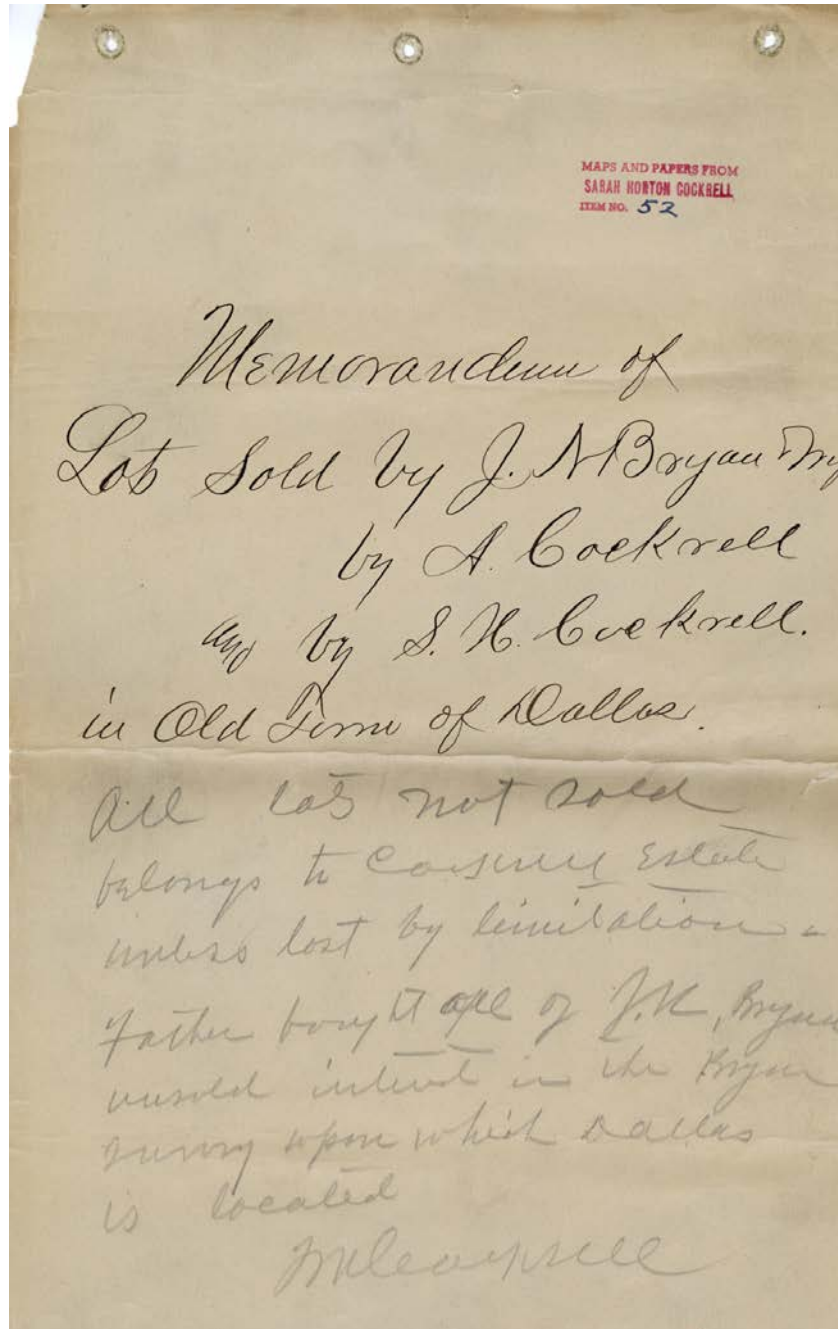 MAPS AND PAPERS FROM
SARAH HORTON COCKRELL
ITEM NO. 52
Memorandum of
Lots Sold by J. N Bryan
by A. Cockrell
and by S. H. Cockrell.
in Old Town of Dallas.
All lots not sold
belongs to Cockrell Estate
unless lost by limitation -
Father bought all of J. N, Bryan
unsold interest in the Bryan
survey upon which Dallas
is located